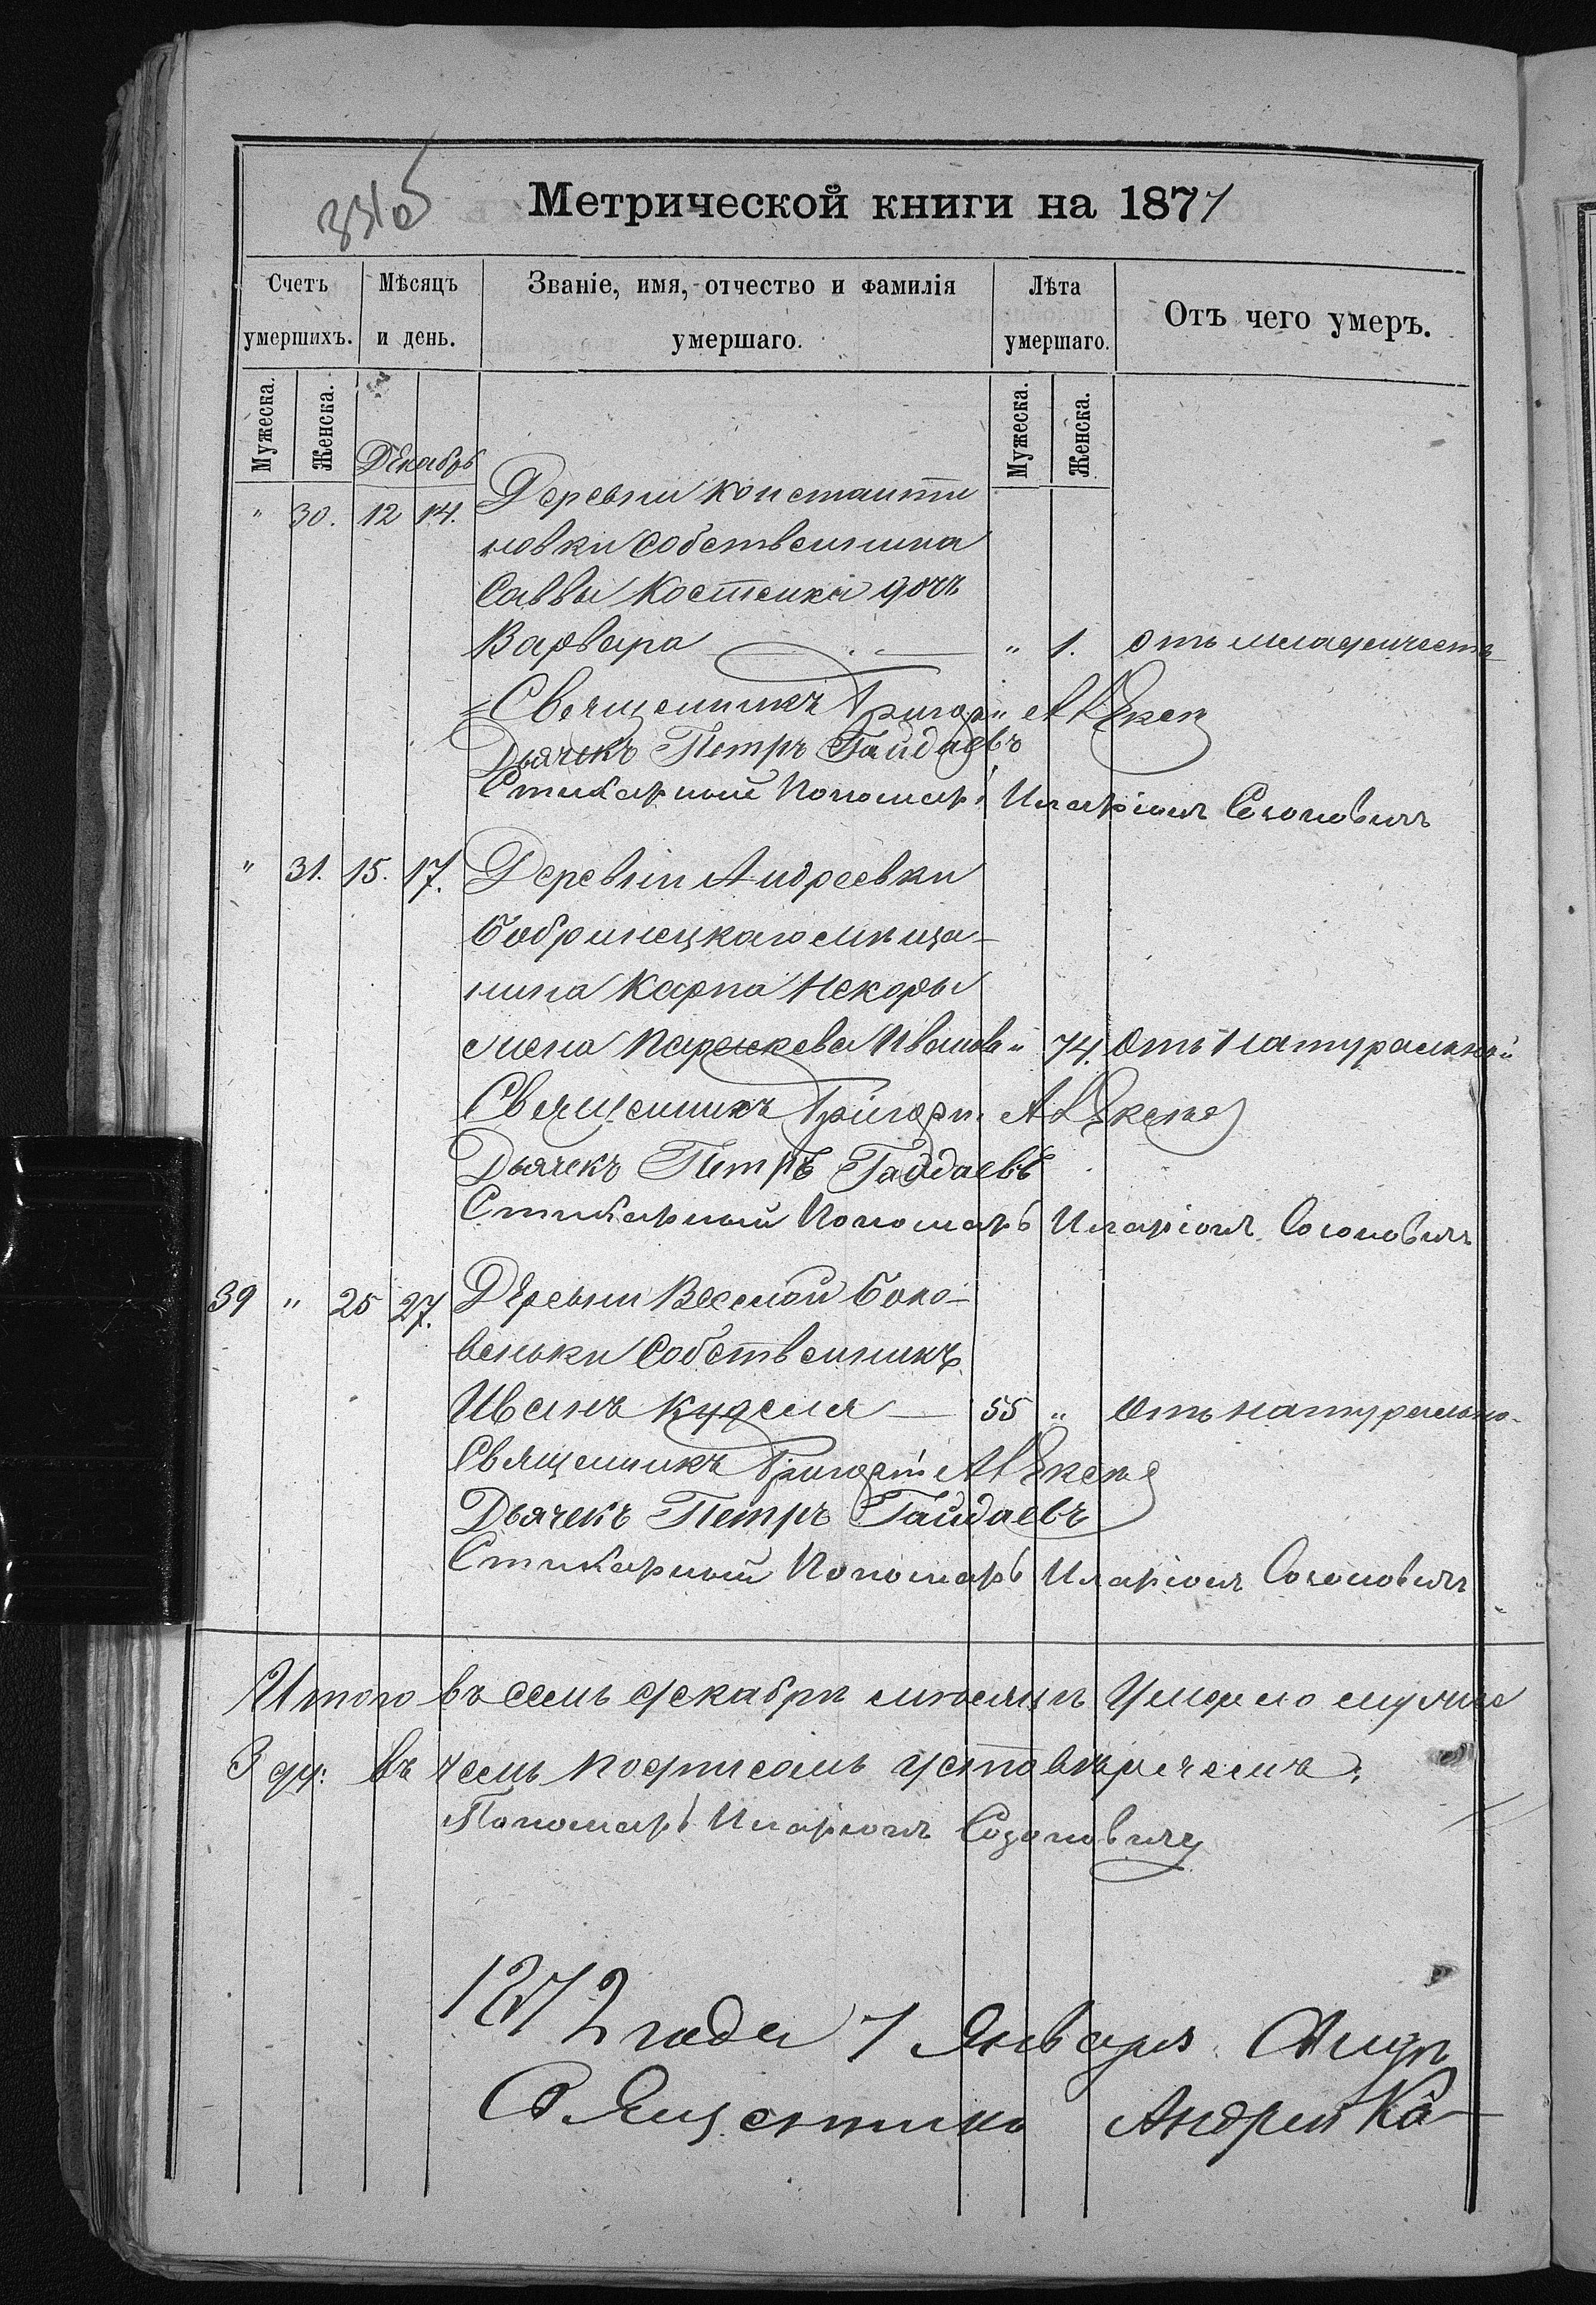 Метрической книги на 1871
Счетъ умершихъ. Мѣсяцъ и день. Званіе, имя, отчество и фамилія умершаго. Лѣта умершаго. Отъ чего умеръ.
Мужеска. Женска. Мужеска. Женска.
Декабрь
" 30. 12 14. Деревни Константи
новки собственника
Саввы Костенка дочъ
Варвара " 1. отъ младенчест
Священникъ Григорій
Дьячекъ Петръ Гайдаевъ
Стихарный Пономарь Иларіонъ Созоновичъ
" 31. 15. 17. Деревни Андреевки
Бобринецкаго мѣща-
нина Карпа Некоры
жена Параскева Иванов " 74. Отъ натуральной
Священникъ Григорій
Дьячекъ Петръ Гайдаевъ
Стихарный Пономарь Иларіонъ Созоновичъ
39 " 25 27. Деревни Веселой Боко-
веньки Собственникъ
Иванъ Куделя — 55 " Отъ натурально-
Священникъ Григорій
Дьячекъ Петръ Гайдаевъ
Стихарный Пономарь Иларіонъ Созоновичъ
Итого въ семъ декабрѣ мѣсяцѣ умерло
3 ду: въ чемъ подписомъ
Пономарь Иларіонъ Созоновичъ
1872 года 7 Января
Священникъ Андрей Ка-